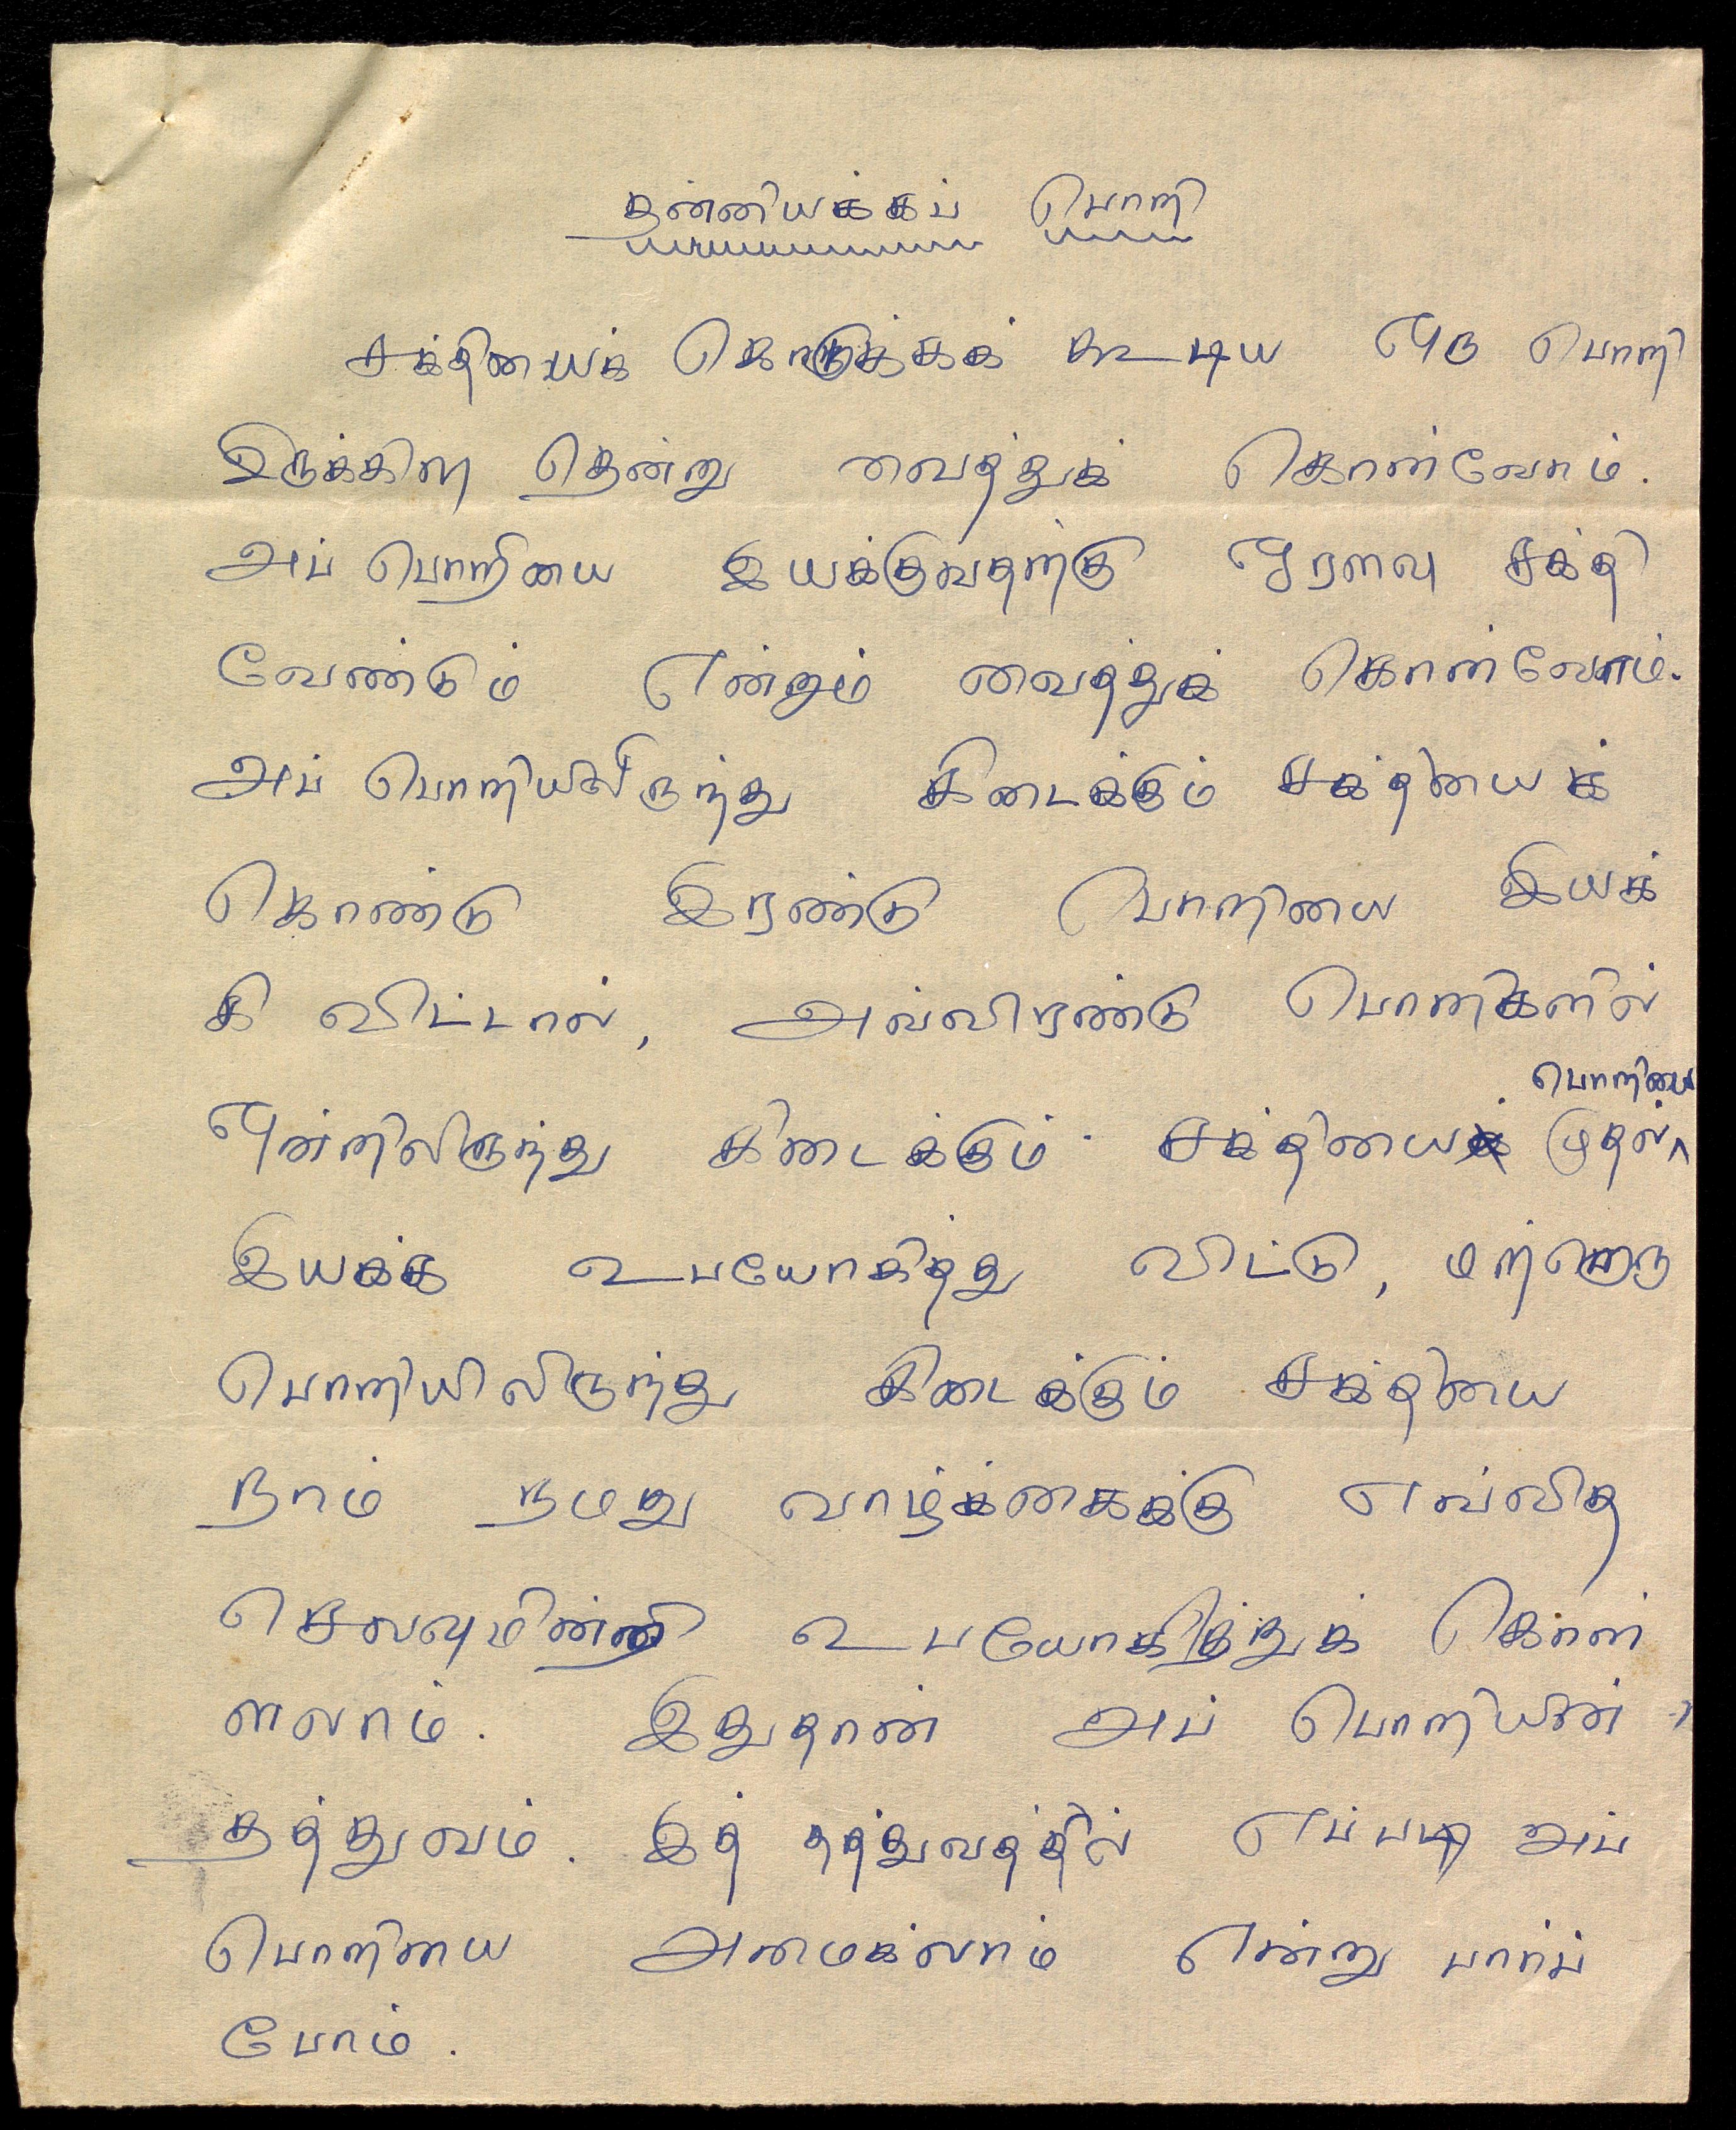 தன்னியக்கப் பொறி
சக்தியைக் கொடுக்கக் கூடிய ஒரு பொறி
இருக்கிற தென்று வைத்துக் கொள்வோம்.
அப் பொறியை இயக்குவதற்கு ஓரளவு சக்தி
வேண்டும் என்றும் வைத்துக் கொள்வோம்.
அப் பொறியிலிருந்து கிடைக்கும் சக்தியைக்
கொண்டு இரண்டு பொறியை இயக்
கி விட்டால், அவ்விரண்டு பொறிகளில்
பொறியை
ஒன்றிலிருந்து கிடைக்கும் சக்தியை முதல்^
இயக்க உபயோகித்து விட்டு, மற்றொரு
பொறியிலிருந்து கிடைக்கும் சக்தியை
நாம் நமது வாழ்க்கைக்கு எவ்வித
செலவுமின்றி உபயோகித்துக் கொள்
ளலாம். இதுதான் அப் பொறியின்
தத்துவம். இத் தத்துவத்தில் எப்படி அப்
பொறியை அமைக்லாம் என்று பார்ப்
போம்.